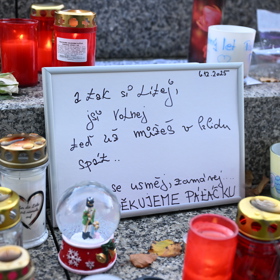 6.12.2025
a tak si lítej,
jsi volnej
teď už můžeš v klidu
spát..
se usměj, zamávej
ĚKUJEME PÁŤAČKU